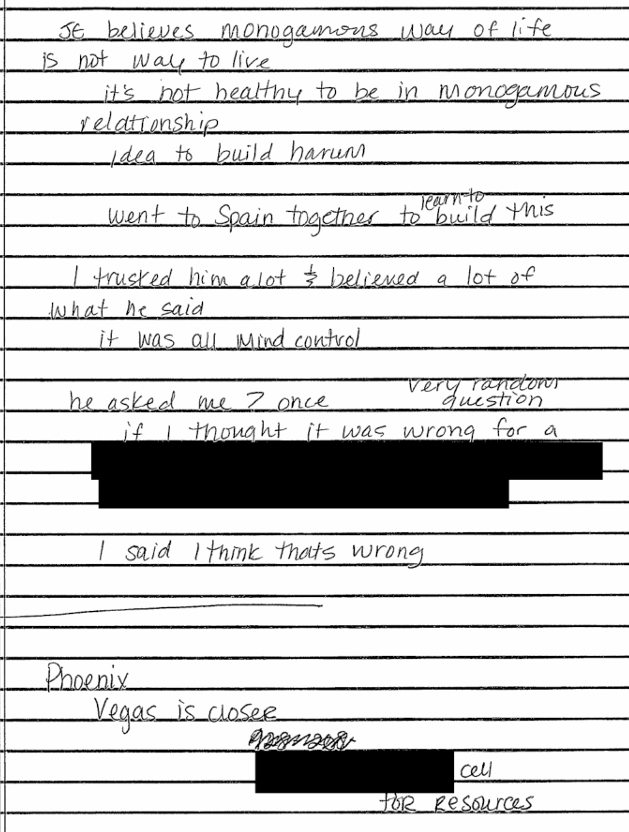 JE believes monogamous way of life
is not way to live
it's not healthy to be in monogamous
relationship
idea to build harum
learn to
went to Spain together to build this
I trusted him a lot & believed a lot of
what he said
it was all mind control
very random
he asked me ? once question
if I thought it was wrong for a
I said I think thats wrong
Phoenix
Vegas is closer
cell
for resources